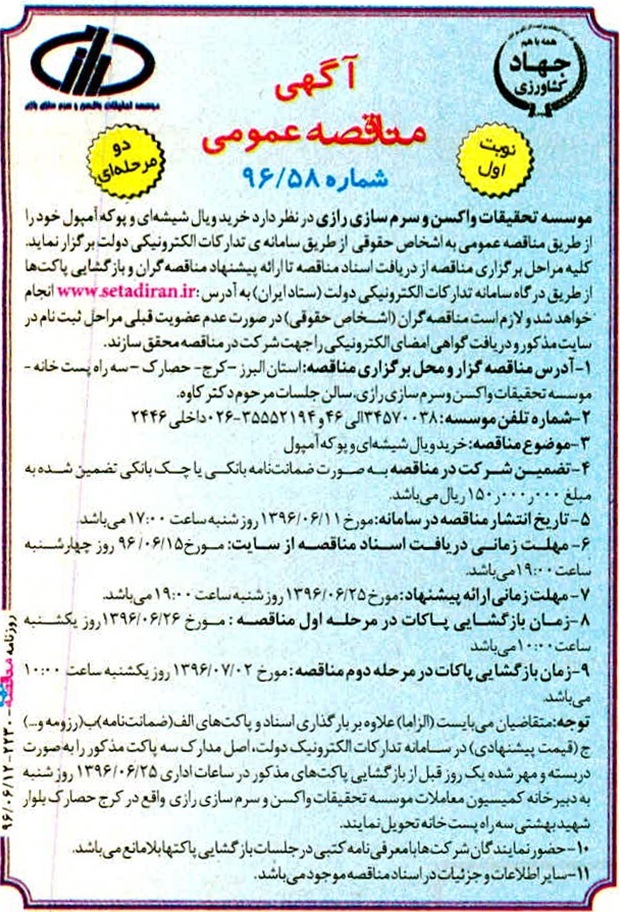 همه با هم
جهاد
کشاورزی
موسسه تحقیقات واکسن و سرم سازی رازی
آگهی
مناقصه عمومی
شماره ۹۶/۵۸
نوبت
اول
دو
مرحله‌ای
موسسه تحقیقات واکسن و سرم سازی رازی در نظر دارد خرید ویال شیشه‌ای و پوکه آمپول خود را
از طریق مناقصه عمومی به اشخاص حقوقی از طریق سامانه ی تدارکات الکترونیکی دولت برگزار نماید.
کلیه مراحل برگزاری مناقصه از دریافت اسناد مناقصه تا ارائه پیشنهاد مناقصه‌گران و بازگشایی پاکت‌ها
از طریق درگاه سامانه تدارکات الکترونیکی دولت (ستاد ایران) به آدرس: www.setadiran.ir انجام
خواهد شد و لازم است مناقصه‌گران (اشخاص حقوقی) در صورت عدم عضویت قبلی مراحل ثبت نام در
سایت مذکور و دریافت گواهی امضای الکترونیکی را جهت شرکت در مناقصه محقق سازند.
۱-آدرس مناقصه گزار و محل برگزاری مناقصه: استان البرز -کرج- حصارک -سه راه پست خانه -
موسسه تحقیقات واکسن و سرم سازی رازی، سالن جلسات مرحوم دکتر کاوه.
۲-شماره تلفن موسسه: ۳۴۵۷۰۰۳۸الی ۴۶ و ۳۵۵۵۲۱۹۴-۰۲۶داخلی ۲۴۴۶
۳-موضوع مناقصه: خرید ویال شیشه‌ای و پوکه آمپول
۴-تضمین شرکت در مناقصه به صورت ضمانت‌نامه بانکی یا چک بانکی تضمین شده به
مبلغ ۱۵۰٫۰۰۰٫۰۰۰ ریال می‌باشد.
۵-تاریخ انتشار مناقصه در سامانه: مورخ ۱۳۹۶/۰۶/۱۱ روز شنبه ساعت ۱۷:۰۰ می‌باشد.
۶-مهلت زمانی دریافت اسناد مناقصه از سایت: مورخ ۹۶/۰۶/۱۵ روز چهارشنبه
ساعت ۱۹:۰۰ می‌باشد.
۷-مهلت زمانی ارائه پیشنهاد: مورخ ۱۳۹۶/۰۶/۲۵ روز شنبه ساعت ۱۹:۰۰ می‌باشد.
۸-زمان بازگشایی پاکات در مرحله اول مناقصه: مورخ ۱۳۹۶/۰۶/۲۶ روز یکشنبه
ساعت ۱۰:۰۰ می‌باشد
۹-زمان بازگشایی پاکات در مرحله دوم مناقصه: مورخ ۱۳۹۶/۰۷/۰۲ روز یکشنبه ساعت ۱۰:۰۰
می‌باشد.
توجه: متقاضیان می‌بایست (الزاما) علاوه بر بارگذاری اسناد و پاکت‌های الف(ضمانت‌نامه)ب(رزومه و...)
ج (قیمت پیشنهادی) در سامانه تدارکات الکترونیک دولت، اصل مدارک سه پاکت مذکور را به صورت
دربسته و مهر شده یک روز قبل از بازگشایی پاکت‌های مذکور در ساعات اداری ۱۳۹۶/۰۶/۲۵ روز شنبه
به دبیرخانه کمیسیون معاملات موسسه تحقیقات واکسن و سرم سازی رازی واقع در کرج حصارک بلوار
شهید بهشتی سه راه پست خانه تحویل نمایند.
۱۰-حضور نمایندگان شرکت‌ها با معرفی نامه کتبی در جلسات بازگشایی پاکتها بلامانع می‌باشد.
۱۱-سایر اطلاعات و جزئیات در اسناد مناقصه موجود می‌باشد.
روزنامه مناقصه - ۲۲۳۰ - ۹۶/۰۶/۱۲